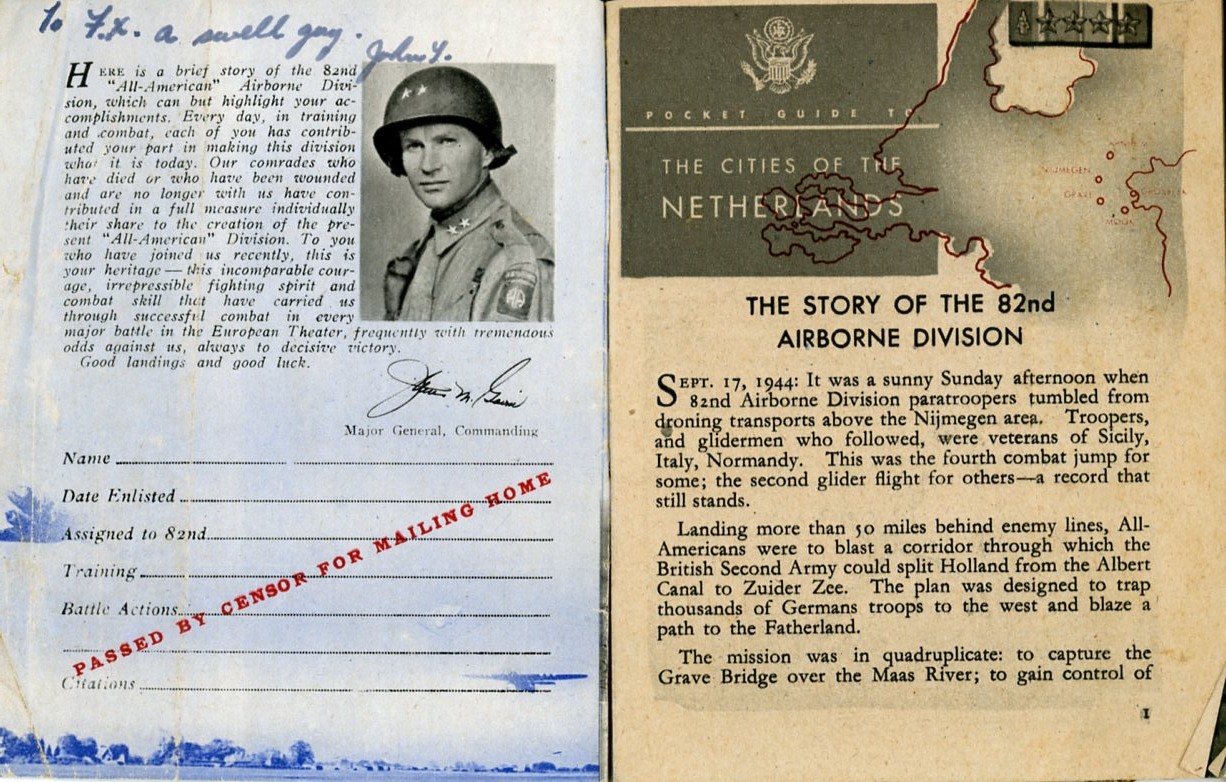 To F.X. a swell guy.
John Y.
HERE is a brief story of the 82nd
"All-American" Airborne Divi-
sion, which can but highlight your ac-
complishments. Every day, in training
and combat, each of you has contrib-
uted your part in making this division
what it is today. Our comrades who
have died or who have been wounded
and are no longer with us have con-
tributed in a full measure individually
their share to the creation of the pre-
sent "All-American" Division. To you
who have joined us recently, this is
your heritage — this incomparable cour-
age, irrepressible fighting spirit and
combat skill that have carried us
through successful combat in every
major battle in the European Theater, frequently with tremendous
odds against us, always to decisive victory.
Good landings and good luck.
Major General, Commanding
Name
Date Enlisted
Assigned to 82nd
Training
Battle Actions
Citations
PASSED BY CENSOR FOR MAILING HOME
AA
POCKET GUIDE TO
THE CITIES OF THE
NETHERLANDS
NIJMEGEN
GRAVE
THE STORY OF THE 82nd
AIRBORNE DIVISION
SEPT. 17, 1944: It was a sunny Sunday afternoon when
82nd Airborne Division paratroopers tumbled from
droning transports above the Nijmegen area. Troopers,
and glidermen who followed, were veterans of Sicily,
Italy, Normandy. This was the fourth combat jump for
some; the second glider flight for others—a record that
still stands.
Landing more than 50 miles behind enemy lines, All-
Americans were to blast a corridor through which the
British Second Army could split Holland from the Albert
Canal to Zuider Zee. The plan was designed to trap
thousands of Germans troops to the west and blaze a
path to the Fatherland.
The mission was in quadruplicate: to capture the
Grave Bridge over the Maas River; to gain control of
1